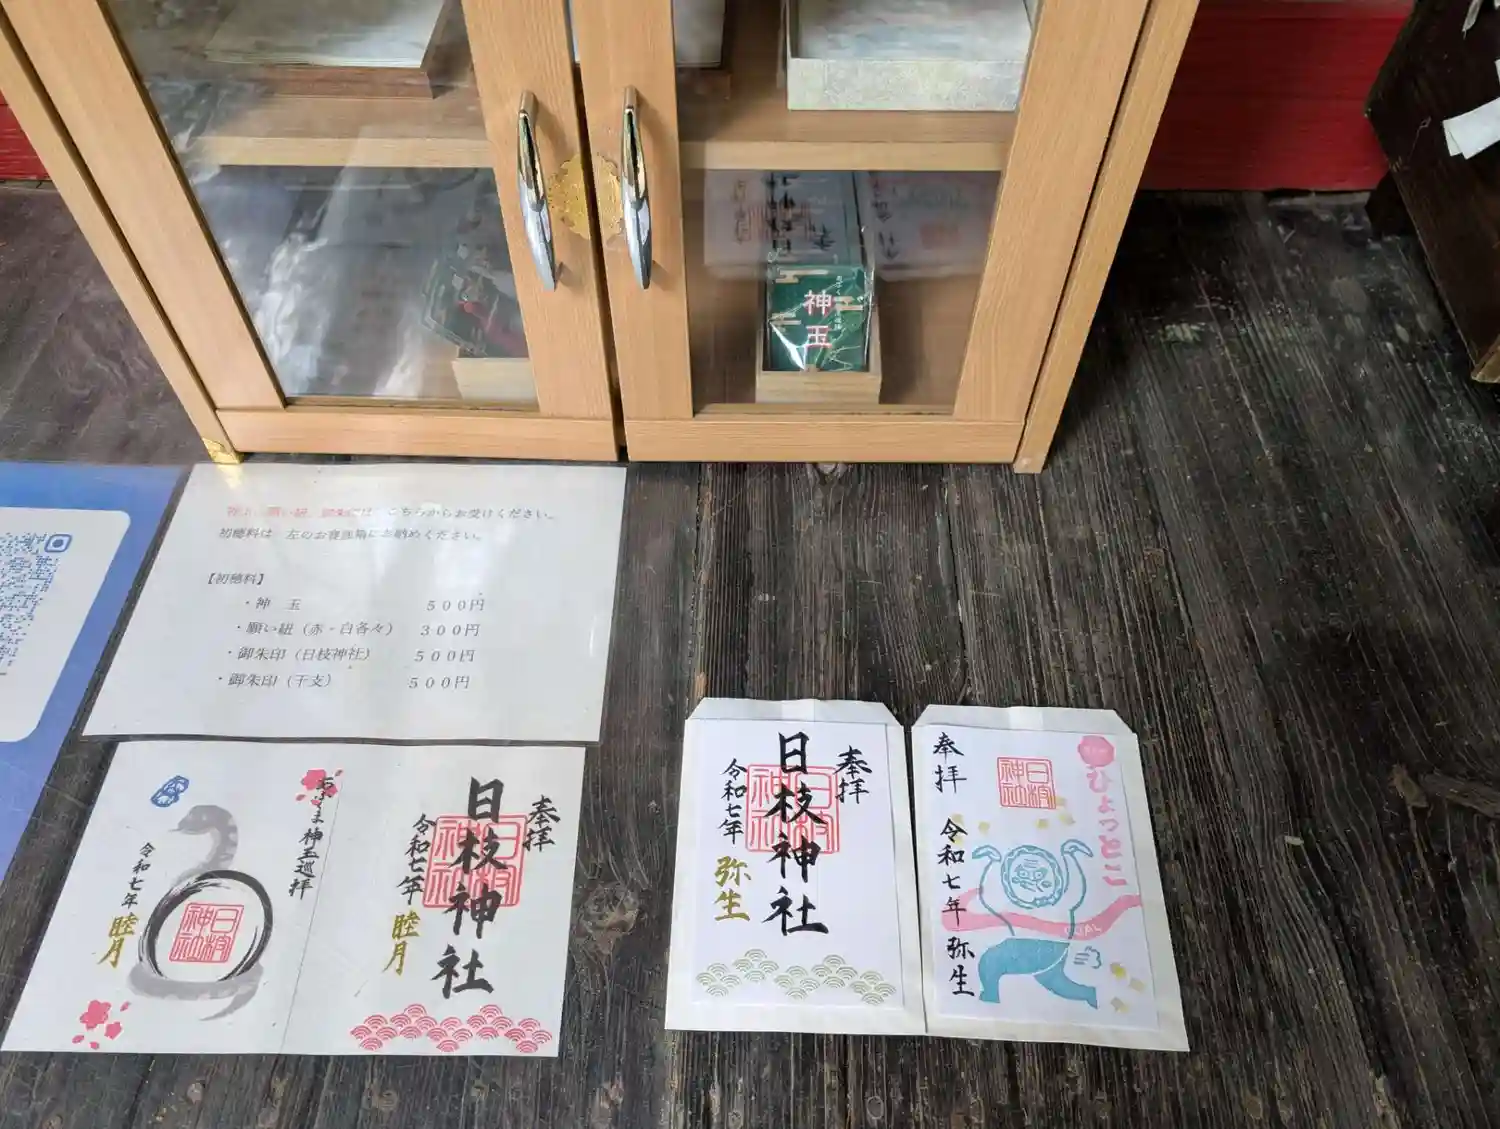 神玉
こちらからお受けください。
初穂料は 左のお賽銭箱にお納めください。
【初穂料】
・神 玉 ５００円
・願い紐（赤・白各々） ３００円
・御朱印（日枝神社） ５００円
・御朱印（干支） ５００円
神玉巡拝
令和七年 睦月
日枝神社
奉拝
日枝神社
令和七年 睦月
日枝神社
奉拝
日枝神社
令和七年 弥生
日枝神社
奉拝
日枝神社
ひょっとこ
令和七年 弥生
GOAL